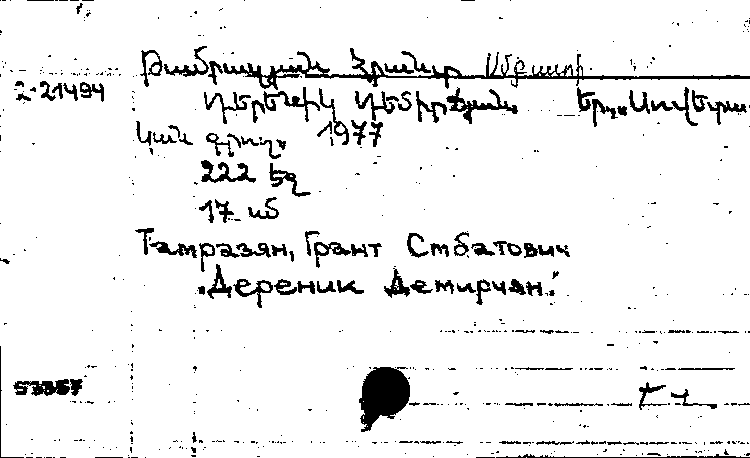 Թամրազյան Հրանտ Սմբատի
2-21494
Դերենիկ Դեմիրճյան. Եր., «Սովետա
կան գրող» 1977
222 եջ
17 սմ
Тамразян, Грант Смбатович
"Дереник Демирчян."
53357